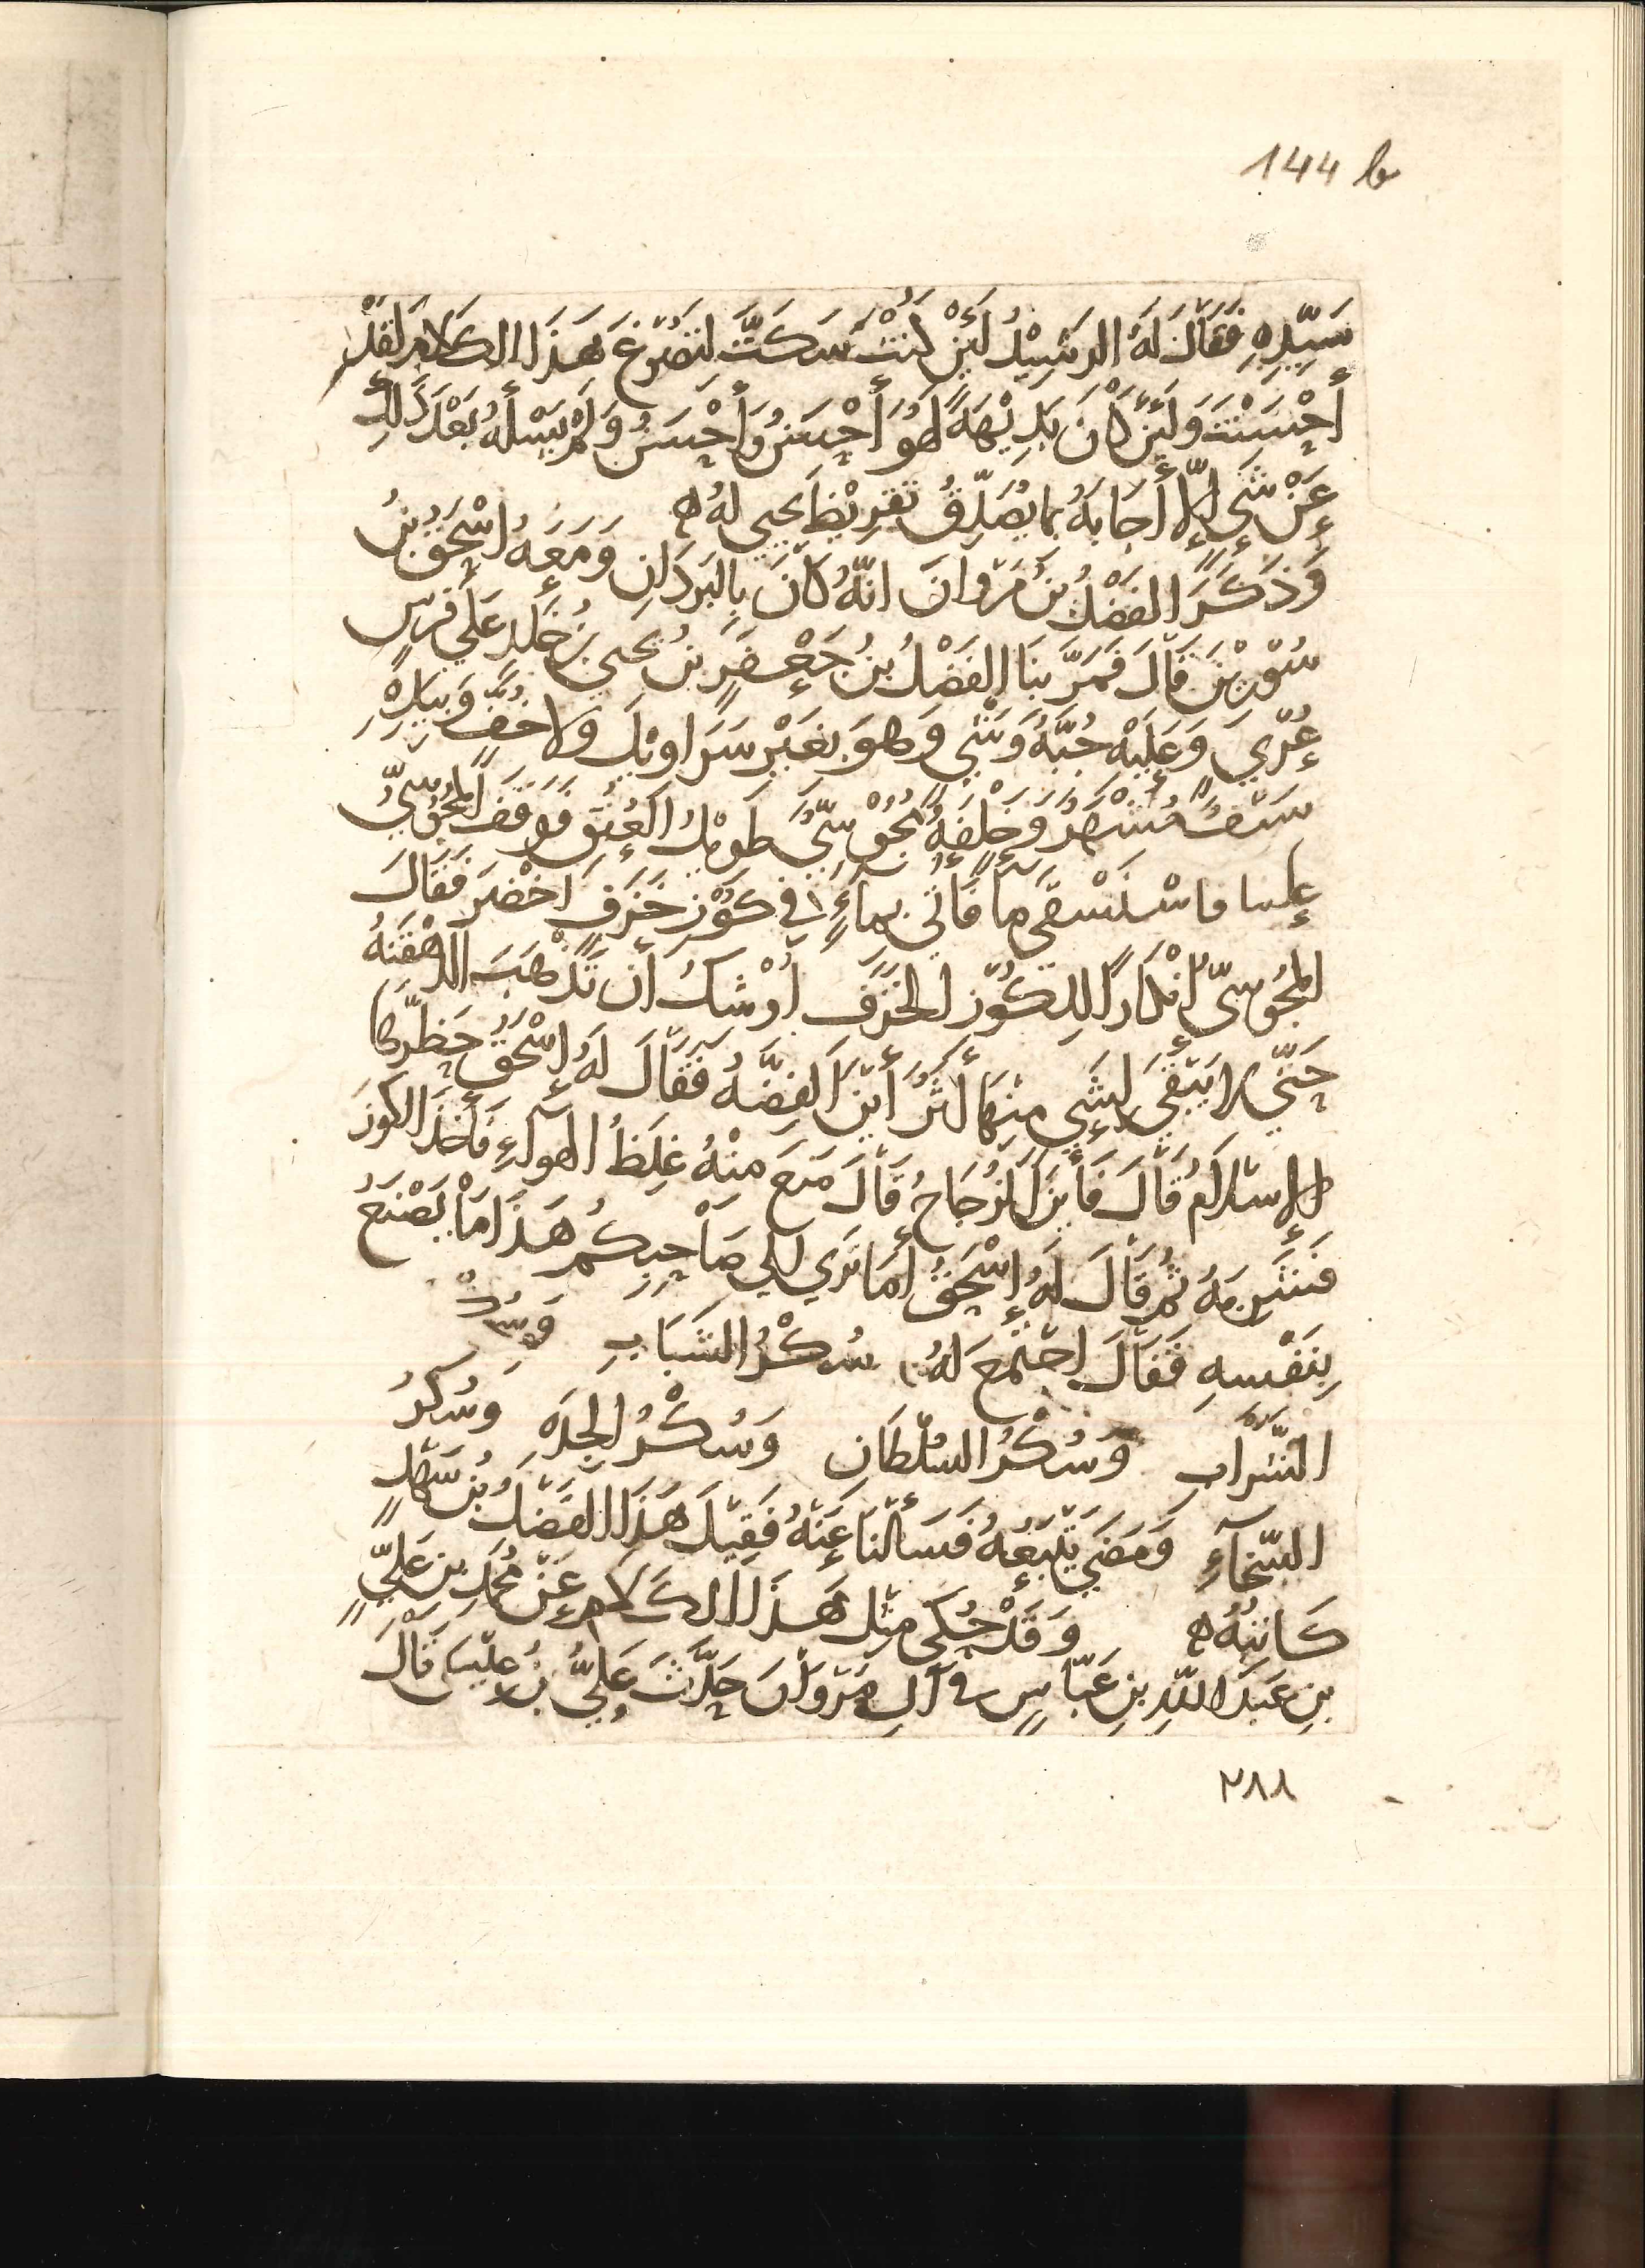 144 b
سَيِّدِهِ فَقَالَ لَهُ الرَشِيْدُ لَئِنْ كُنْتَ سَكَتَّ لِتَصُوْغَ هَذَا الكَلامَ لَقَدْ
أَحْسَنْتَ وَلَئِنْ كَانَ بَدِيْهَةً لَهُوَ أَحْسَنُ وَأَحْسَنُ وَلَمْ يَسْلهُ بَعْدَ ذَلِكَ
عَنْ شَيءٍ إِلّا أَجَابَهُ بِمَا يُصَدِّقُ تَقْرِيْظَ يَحيى لَهُ ه
وَذَكَرَ الفَضْلُ بنُ مَرْوانَ انَّهُ كَانَ بِالبَرَدَانِ وَمَعَهُ اسْحَقُ بنُ
سُوْرِيْنَ قَالَ فَمَرَّ بِنَا الفَضْلُ بنُ جَعْفَرٍ بنُ يحيى بنُ خَلِدٍ عَلَى فَرسٍ
عُرْيٍ وَعَلَيْهِ جُبَّةُ وَشْيٍ وَهوَ بِغَيْرِ سَرَاويْلَ وَلا خُفٍّ وَبِيَدِهِ
سَيْفٌ مُشَهَّرٌ وَخَلْفَهُ مَجُوْسِيٌّ طَوِيْلُ العُنُقِ فَوَقَفَ المجُوْسِيُّ
علينا فاسْتَسْقَى مَاً فَأُتي بمَاءٍ في كُوْزِ خَزَفٍ اخْضَرَ فَقَالَ
المجُوْسِيُّ انْكَارًا لِلكُوْزِ الخَزَفِ اوْشَكُ أَن تَذْهَبَ الدَهْقَنَةُ
حَتَّى لا يَبْقَى لِشَيءٍ مِنْهَا أَثَرٌ أَيْنَ الفِضَّةُ فَقَالَ لَهُ إِسْحَقُ حَظَرَهَا
الإِسْلامُ قَالَ فَأَيْنَ الزُجَاجُ قَالَ مَنَعَ مِنْهُ غِلَظُ الهَوآءِ فَأَخَذَ الكُوزَ
فَشَرِبَهُ ثُمَّ قَالَ لَهُ إِسْحَقُ أَمَا تَرَى إِلى صَاحِبِكُم هَذَا مَا يَصْنَعُ
بِنَفْسِهِ فَقَالَ اجْتَمَعَ لَهُ سُكْرُ الشَبَابِ وَسُكْرُ
الشَّرَابِ وَسُكْرُ السُلْطَانِ وَسُكْرُ الجِدَةِ وَسُكْرُ
السَّخَآءِ وَمَضَى يَتْبَعُهُ فَسَأَلْنَا عَنْهُ فَقِيْلَ هَذَا الفَضْلُ بنُ سَهْلٍ
كَاتِبُهُ ه وَقَدْ حُكِيَ مِثْلُ هَذَا الكَلامِ عَنْ مُحَمَّدِ بنِ عَلِيٍّ
بنِ عَبْدِ اللَّهِ بنِ عَبَّاسٍ في آلِ مَرْوَانَ حَدَّثَ عَلِيُّ بنُ عِيْسَى قَالَ
٢٨٨